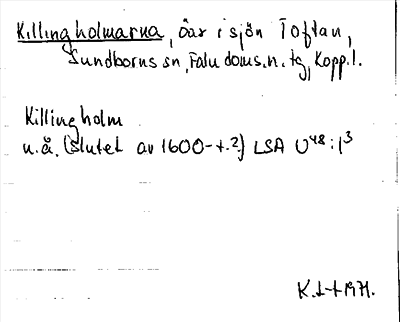 Killingholmarna, öar i sjön Toftan,
Sundborns sn, Falu doms.n. tg, Kopp.l.
Killingholm
u.å. (slutet av 1600-t.?) LSA U48:1³
1971.